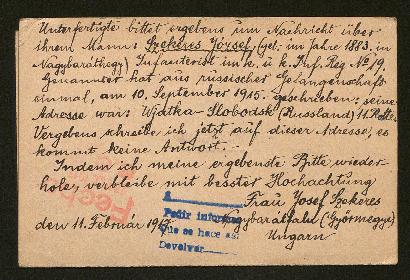 Unterfertigte bittet ergebens um Nachricht über
ihrem Mann: Szekeres József (gel. im Jahre 1883. in
Nagybaráthegy) Infanterist im k. u. k. Inf. Reg. № 19.
Genannter hat aus russischer Gefangenschaft
einmal, am 10. September 1915. geschrieben: seine
Adresse war: Wjatka-Slobodsk (Russland) 11. Rotte
Vergebens schreibe ich jetzt auf dieser Adresse, es
kommt keine Antwort.
Indem ich meine ergebenste Bitte wieder-
hole, verbleibe mit bester Hochachtung
Frau Josef Szekeres
Pedir informes
Que se hace así
Devolver
den 11. Februar
(Győrmegye)
Ungarn